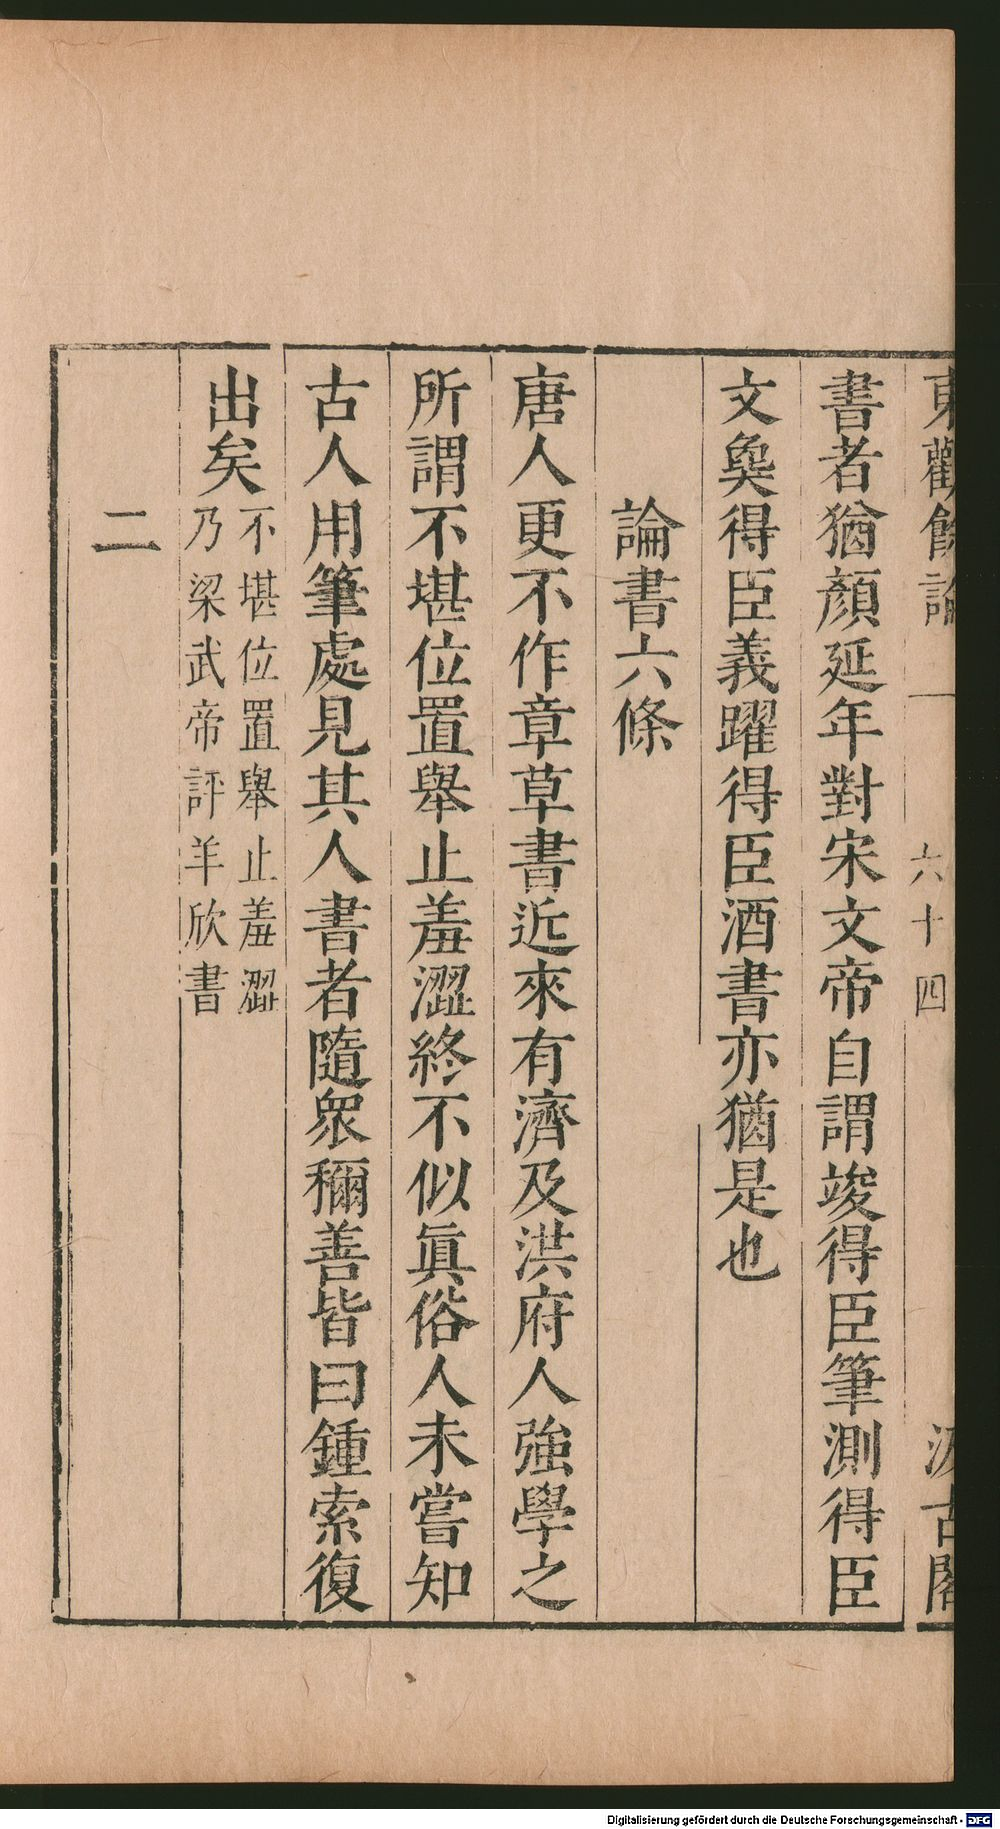 東觀餘論 一 六十四 汲古閣
書者猶顏延年對宋文帝自謂竣得臣筆測得臣
文㚟得臣義躍得臣酒書亦猶是也
論書六條
唐人更不作章草書近來有濟及洪府人強學之
所謂不堪位置舉止羞澀終不似眞俗人未嘗知
古人用筆處見其人書者隨衆稱善皆曰鍾索復
出矣
不堪位置舉止羞澀
乃梁武帝評羊欣書
二
Digitalisierung gefördert durch die Deutsche Forschungsgemeinschaft - DFG